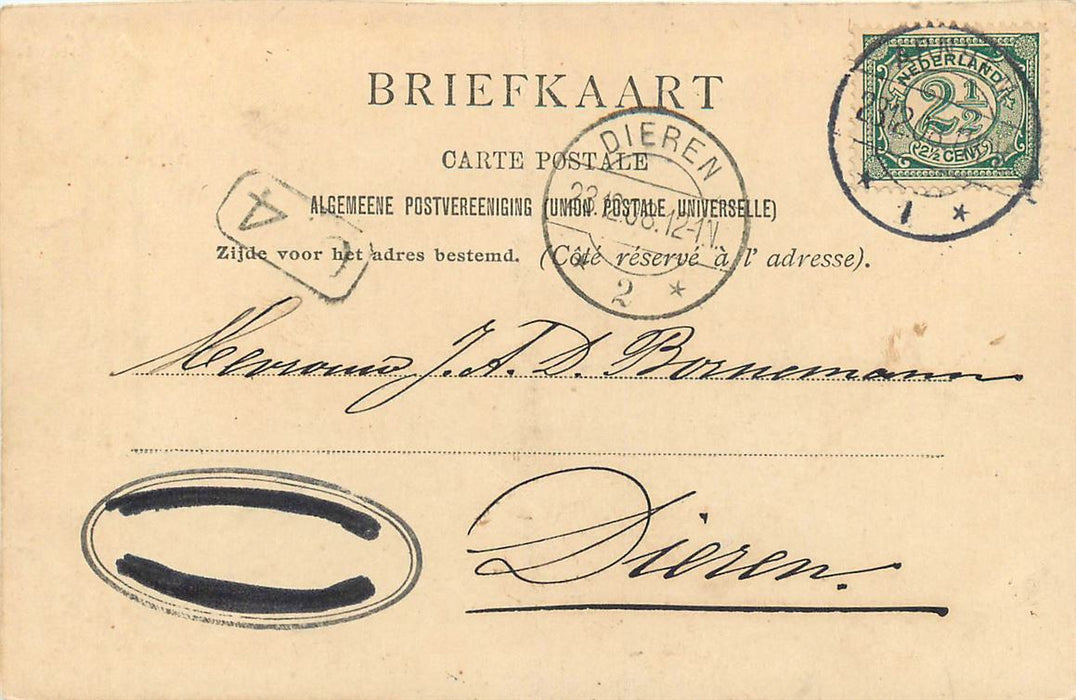 BRIEFKAART
CARTE POSTALE
ALGEMEENE POSTVEREENIGING (UNION POSTALE UNIVERSELLE)
Zijde voor het adres bestemd. (Côté réservé à l' adresse).
NEDERLAND
2½
2½ CENT
1
DIEREN
23.12.06.12-1N.
2
4
Mevrouw J. A. D. Bornemann
Dieren.